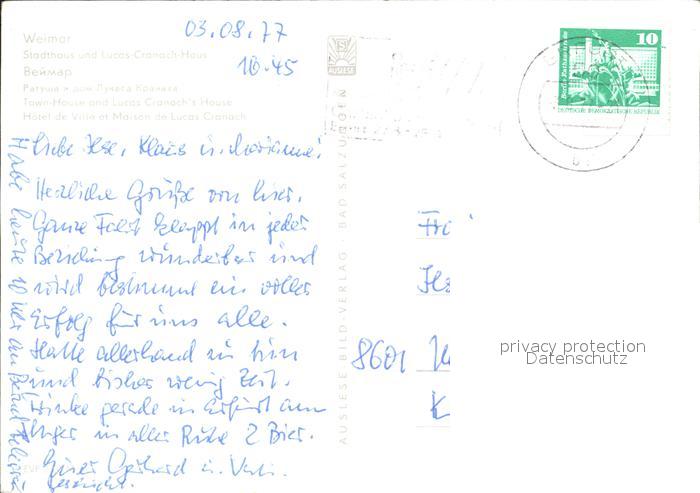 Weimar
Stadthaus und Lucas-Cranach-Haus
Веймар
Ратуша и дом Лукаса Кранаха
Town-House and Lucas Cranach's House
Hôtel de Ville et Maison de Lucas Cranach
03.08.77
10.45
AUSLESE
10
Berlin-Rathausstraße
DEUTSCHE DEMOKRATISCHE REPUBLIK
Liebe Ilse, Klaus u.
Herzliche Grüße von hier.
Ganze Fahrt klappt in jeder
Beziehung wunderbar und
wird bestimmt ein voller
Erfolg für uns alle.
Hatte allerhand zu tun
und bisher wenig Zeit.
Trinke gerade in Erfurt am
in aller Ruhe 2 Bier.
Euer Gerhard u.
Habe heute 10 Uhr an Bernd
AUSLESE BILD-VERLAG · BAD SALZUNGEN
8601
privacy protection
Datenschutz